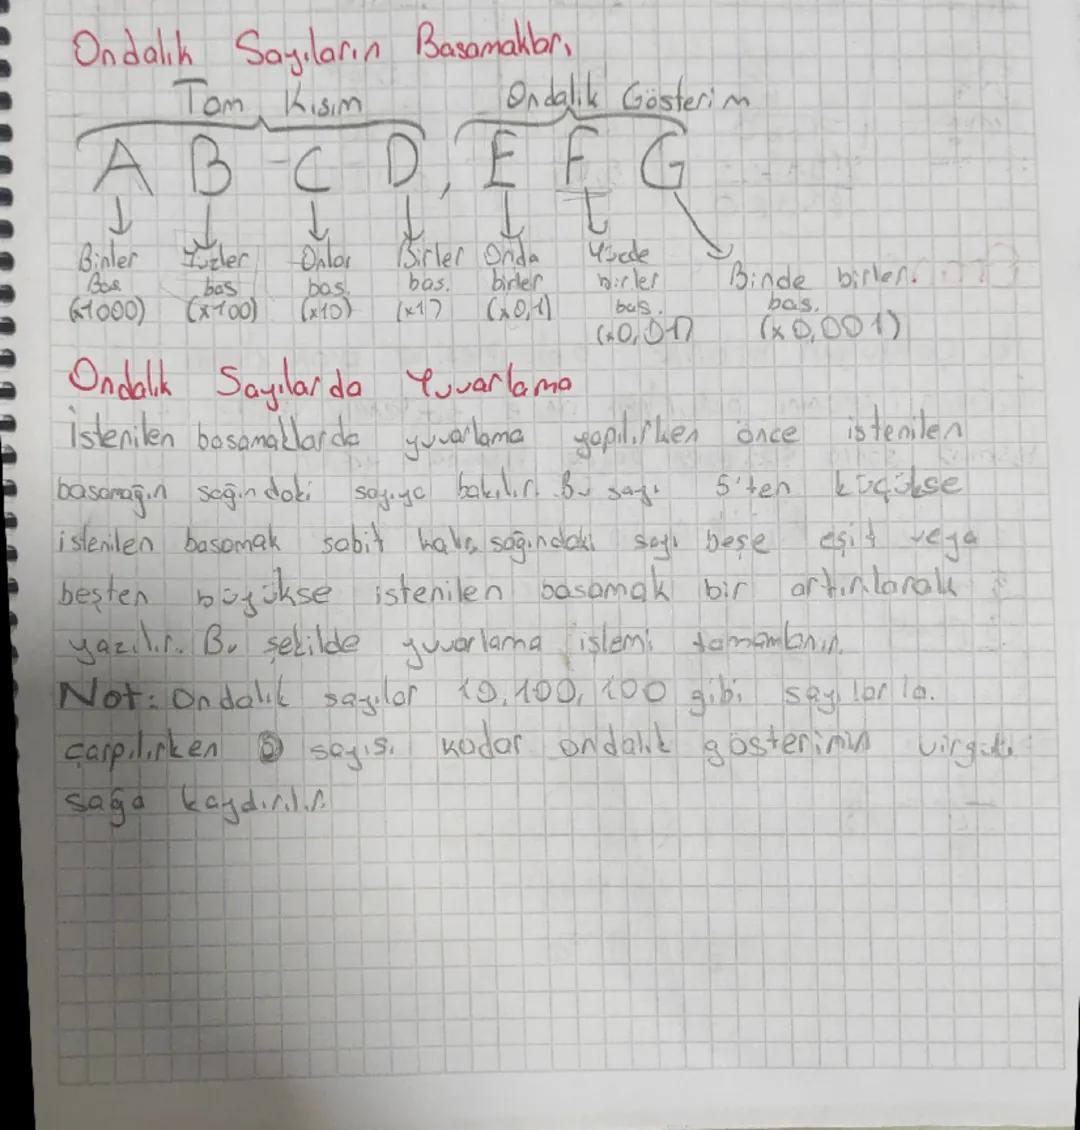 Ondalık Sayıların Basamakları
Tam Kısım Ondalık Gösterim
A B C D, E F G
Binler Yüzler Onlar Birler Onda Yüzde
Bas bas bas. bas. birler birler Binde birler.
(x1000) (x100) (x10) (x1) (x0,1) bas. bas.
(x0,01) (x0,001)
Ondalık Sayılarda Yuvarlama
İstenilen basamaklarda yuvarlama yapılırken önce istenilen
basamağın sağındaki sayıya bakılır. Bu sayı 5'ten küçükse
istenilen basamak sabit kalır, sağındaki sayı beşe eşit veya
beşten büyükse istenilen basamak bir artırılarak
yazılır. Bu şekilde yuvarlama işlemi tamamlanır.
Not: Ondalık sayılar 10, 100, 100 gibi sayılarla.
çarpılırken 0 sayısı kadar ondalık gösterimin virgülü
sağa kaydırılır